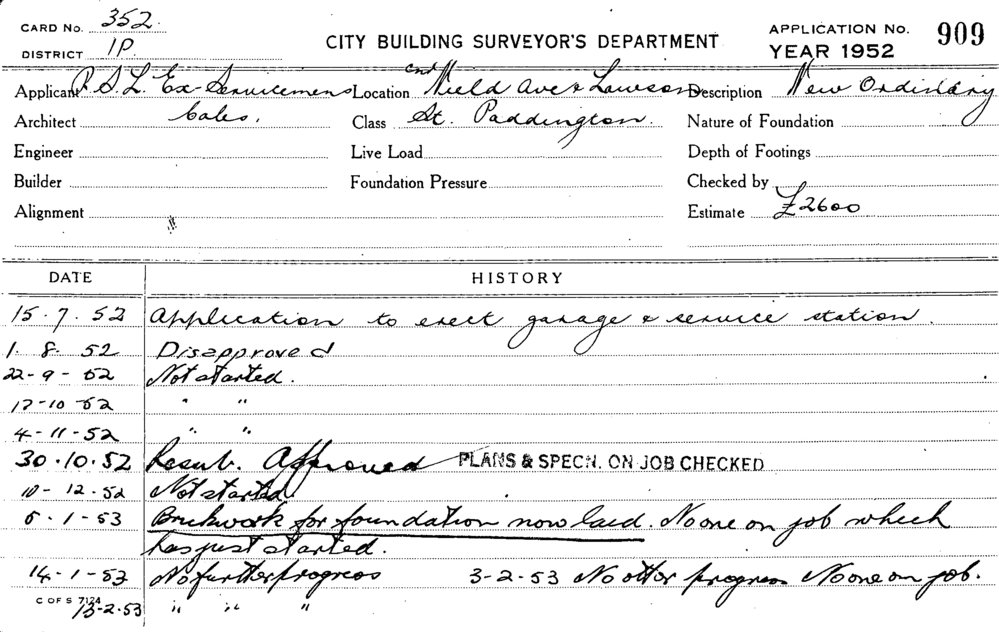 CARD No. 352.
DISTRICT IP.
CITY BUILDING SURVEYOR'S DEPARTMENT
APPLICATION No. 909
YEAR 1952
Applicant R.S.L. Ex-Servicemens Location cnr Nield Ave & Lawson Description New Ordinary
Architect Cales. Class St. Paddington. Nature of Foundation
Engineer Live Load Depth of Footings
Builder Foundation Pressure Checked by
Alignment Estimate £2600
DATE HISTORY
15.7.52 Application to erect garage & service station.
1.8.52 Disapproved
22-9-52 Not started.
17-10-52 " "
4-11-52 " "
30.10.52 Resub. Approved PLANS & SPECN. ON JOB CHECKED
10-12.52 Not started
6.1-53 Brickwork for foundation now laid. No one on job which
has just started.
14-1-53 No further progress 3-2-53 No other progress No one on job.
C OF S 7124
13-2-53 " " "